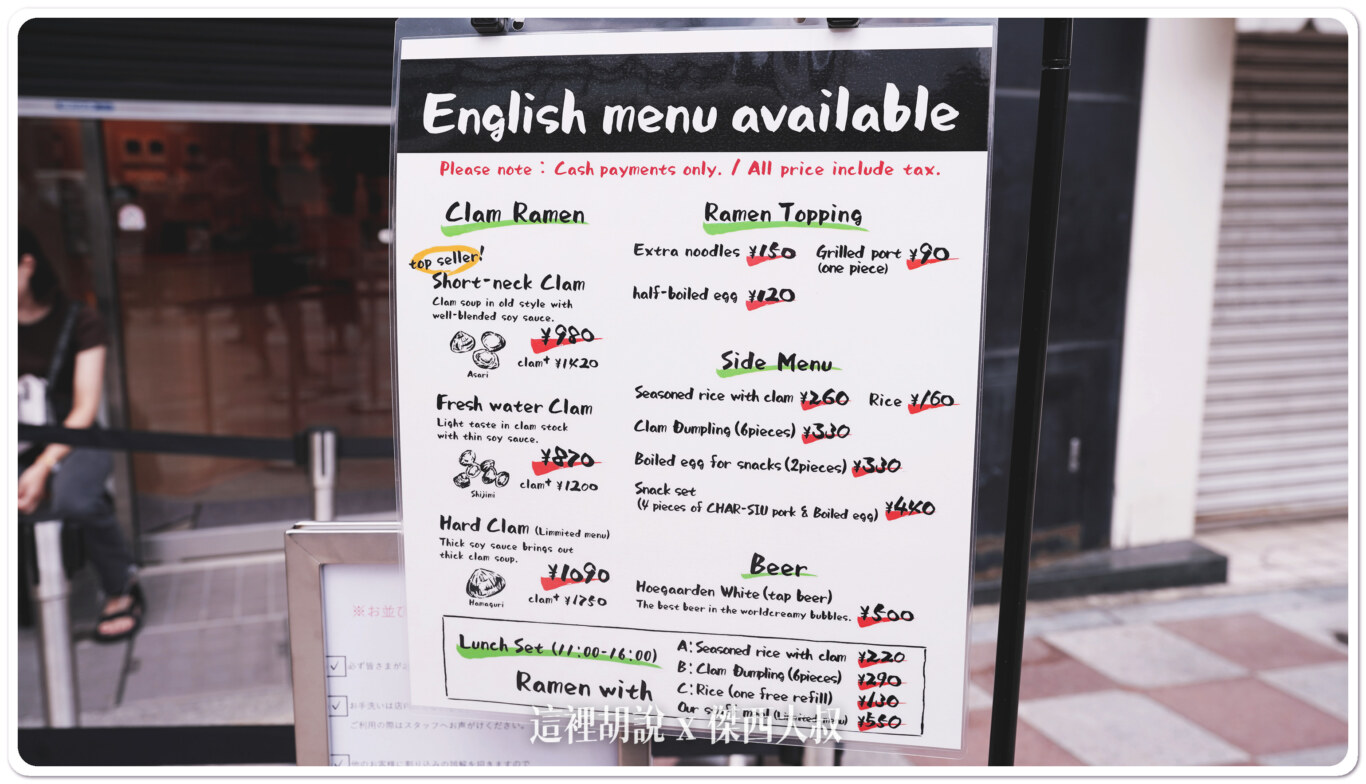 English menu available
Please note : Cash payments only. / All price include tax.
Clam Ramen
top seller!
Short-neck Clam
Clam soup in old style with
well-blended soy sauce.
¥980
Asari
clam+ ¥1420
Fresh water Clam
Light taste in clam stock
with thin soy sauce.
¥870
Shijimi
clam+ ¥1200
Hard Clam (Limmited menu)
Thick soy sauce brings out
thick clam soup.
¥1090
Hamaguri
clam+ ¥1750
Ramen Topping
Extra noodles ¥150 Grilled port ¥90
(one piece)
half-boiled egg ¥120
Side Menu
Seasoned rice with clam ¥260 Rice ¥160
Clam Dumpling (6pieces) ¥330
Boiled egg for snacks (2pieces) ¥330
Snack set
(4 pieces of CHAR-SIU pork & Boiled egg) ¥440
Beer
Hoegaarden White (tap beer)
The best beer in the worldcreamy bubbles. ¥500
Lunch Set (11:00-16:00)
Ramen with
A: Seasoned rice with clam ¥220
B: Clam Dumpling (6pieces) ¥290
C: Rice (one free refill) ¥130
Our ¥550
這裡胡說 x 傑西大叔
※お並び
必ず皆さまが
お手洗いは店
ご利用の際はスタッフへお声がけください。